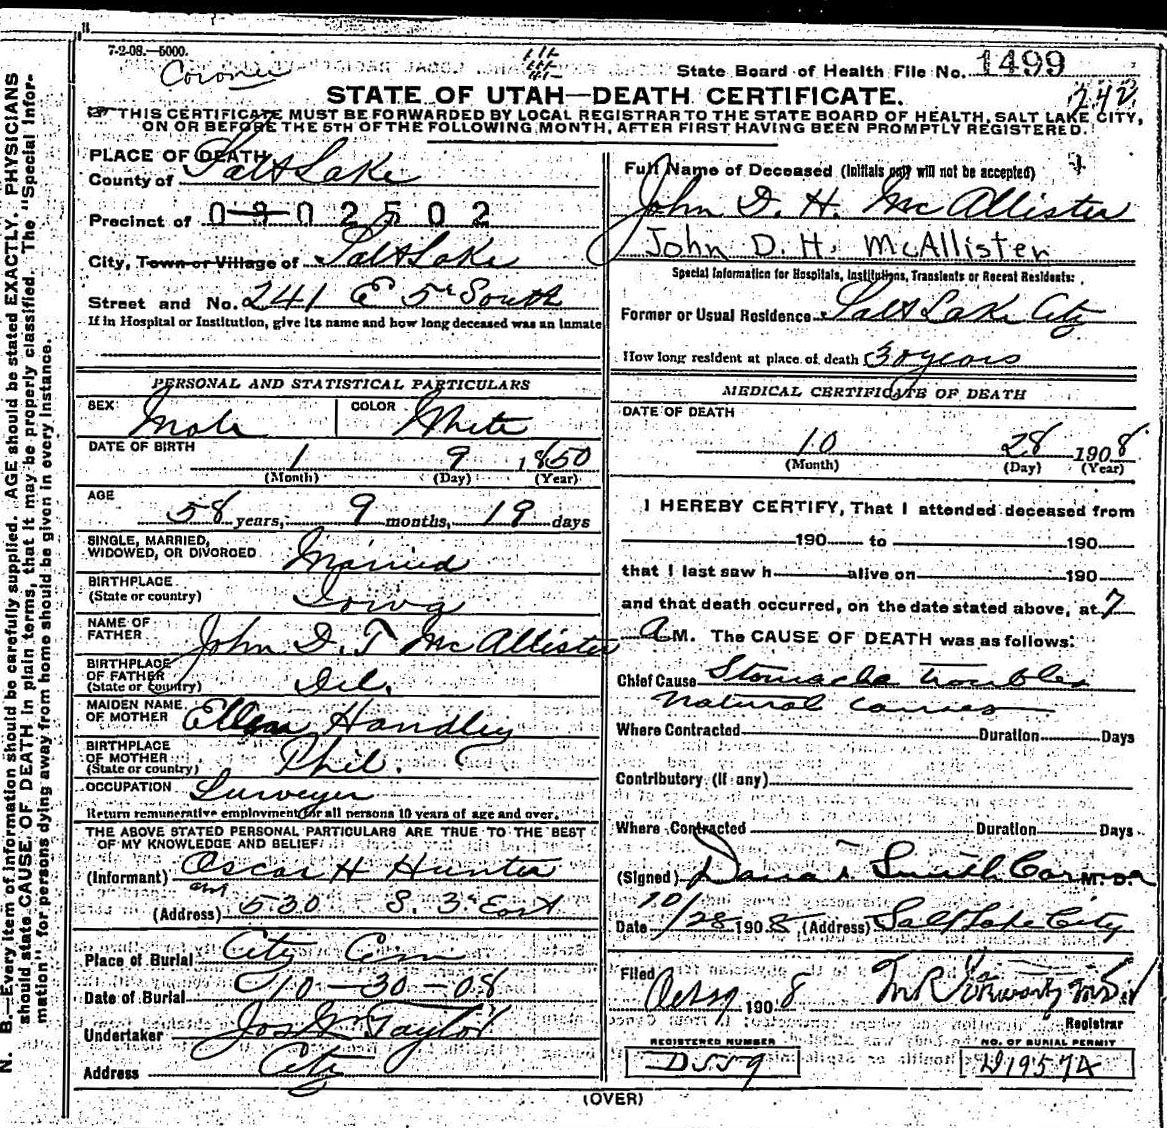 7-2-08.—5000.
Coroner
State Board of Health File No. 1499
242
STATE OF UTAH—DEATH CERTIFICATE.
THIS CERTIFICATE MUST BE FORWARDED BY LOCAL REGISTRAR TO THE STATE BOARD OF HEALTH, SALT LAKE CITY,
ON OR BEFORE THE 5TH OF THE FOLLOWING MONTH, AFTER FIRST HAVING BEEN PROMPTLY REGISTERED.
N. B.—Every item of information should be carefully supplied. AGE should be stated EXACTLY. PHYSICIANS
should state CAUSE OF DEATH in plain terms, that it may be properly classified. The "Special Infor-
mation" for persons dying away from home should be given in every instance.
PLACE OF DEATH
County of Salt Lake
Precinct of 0902502
City, Town or Village of Salt Lake
Street and No. 241 E 5th South
If in Hospital or Institution, give its name and how long deceased was an inmate
PERSONAL AND STATISTICAL PARTICULARS
SEX Male COLOR White
DATE OF BIRTH
1 9 1850
(Month) (Day) (Year)
AGE
58 years, 9 months, 19 days
SINGLE, MARRIED,
WIDOWED, OR DIVORCED Married
BIRTHPLACE
(State or country) Iowa
NAME OF
FATHER John D. T McAllister
BIRTHPLACE
OF FATHER
(State or country) Del.
MAIDEN NAME
OF MOTHER Ellen Handley
BIRTHPLACE
OF MOTHER
(State or country) Phil.
OCCUPATION Surveyer
Return remunerative employment for all persons 10 years of age and over.
THE ABOVE STATED PERSONAL PARTICULARS ARE TRUE TO THE BEST
OF MY KNOWLEDGE AND BELIEF
(Informant) Oscar H Hunter
(Address) 530 S. 3d East
Place of Burial City Cem
Date of Burial 10-30-08
Undertaker Jos Wm Taylor
Address City
Full Name of Deceased (Initials only will not be accepted)
John D. H. McAllister
John D. H. McAllister
Special Information for Hospitals, Institutions, Transients or Recent Residents:
Former or Usual Residence Salt Lake City
How long resident at place of death 30 years
MEDICAL CERTIFICATE OF DEATH
DATE OF DEATH
10 28 1908
(Month) (Day) (Year)
I HEREBY CERTIFY, That I attended deceased from
190 to 190
that I last saw h alive on 190
and that death occurred, on the date stated above, at 7
a M. The CAUSE OF DEATH was as follows:
Chief Cause Stomache troubles
Natural causes
Where Contracted Duration Days
Contributory (if any)
Where Contracted Duration Days
(Signed) Dana T Smith Cor M. D.
Date 10/28 1908 (Address) Salt Lake City
Filed Oct 29 1908
Registrar
REGISTERED NUMBER
D559
NO. OF BURIAL PERMIT
D1957A
(OVER)